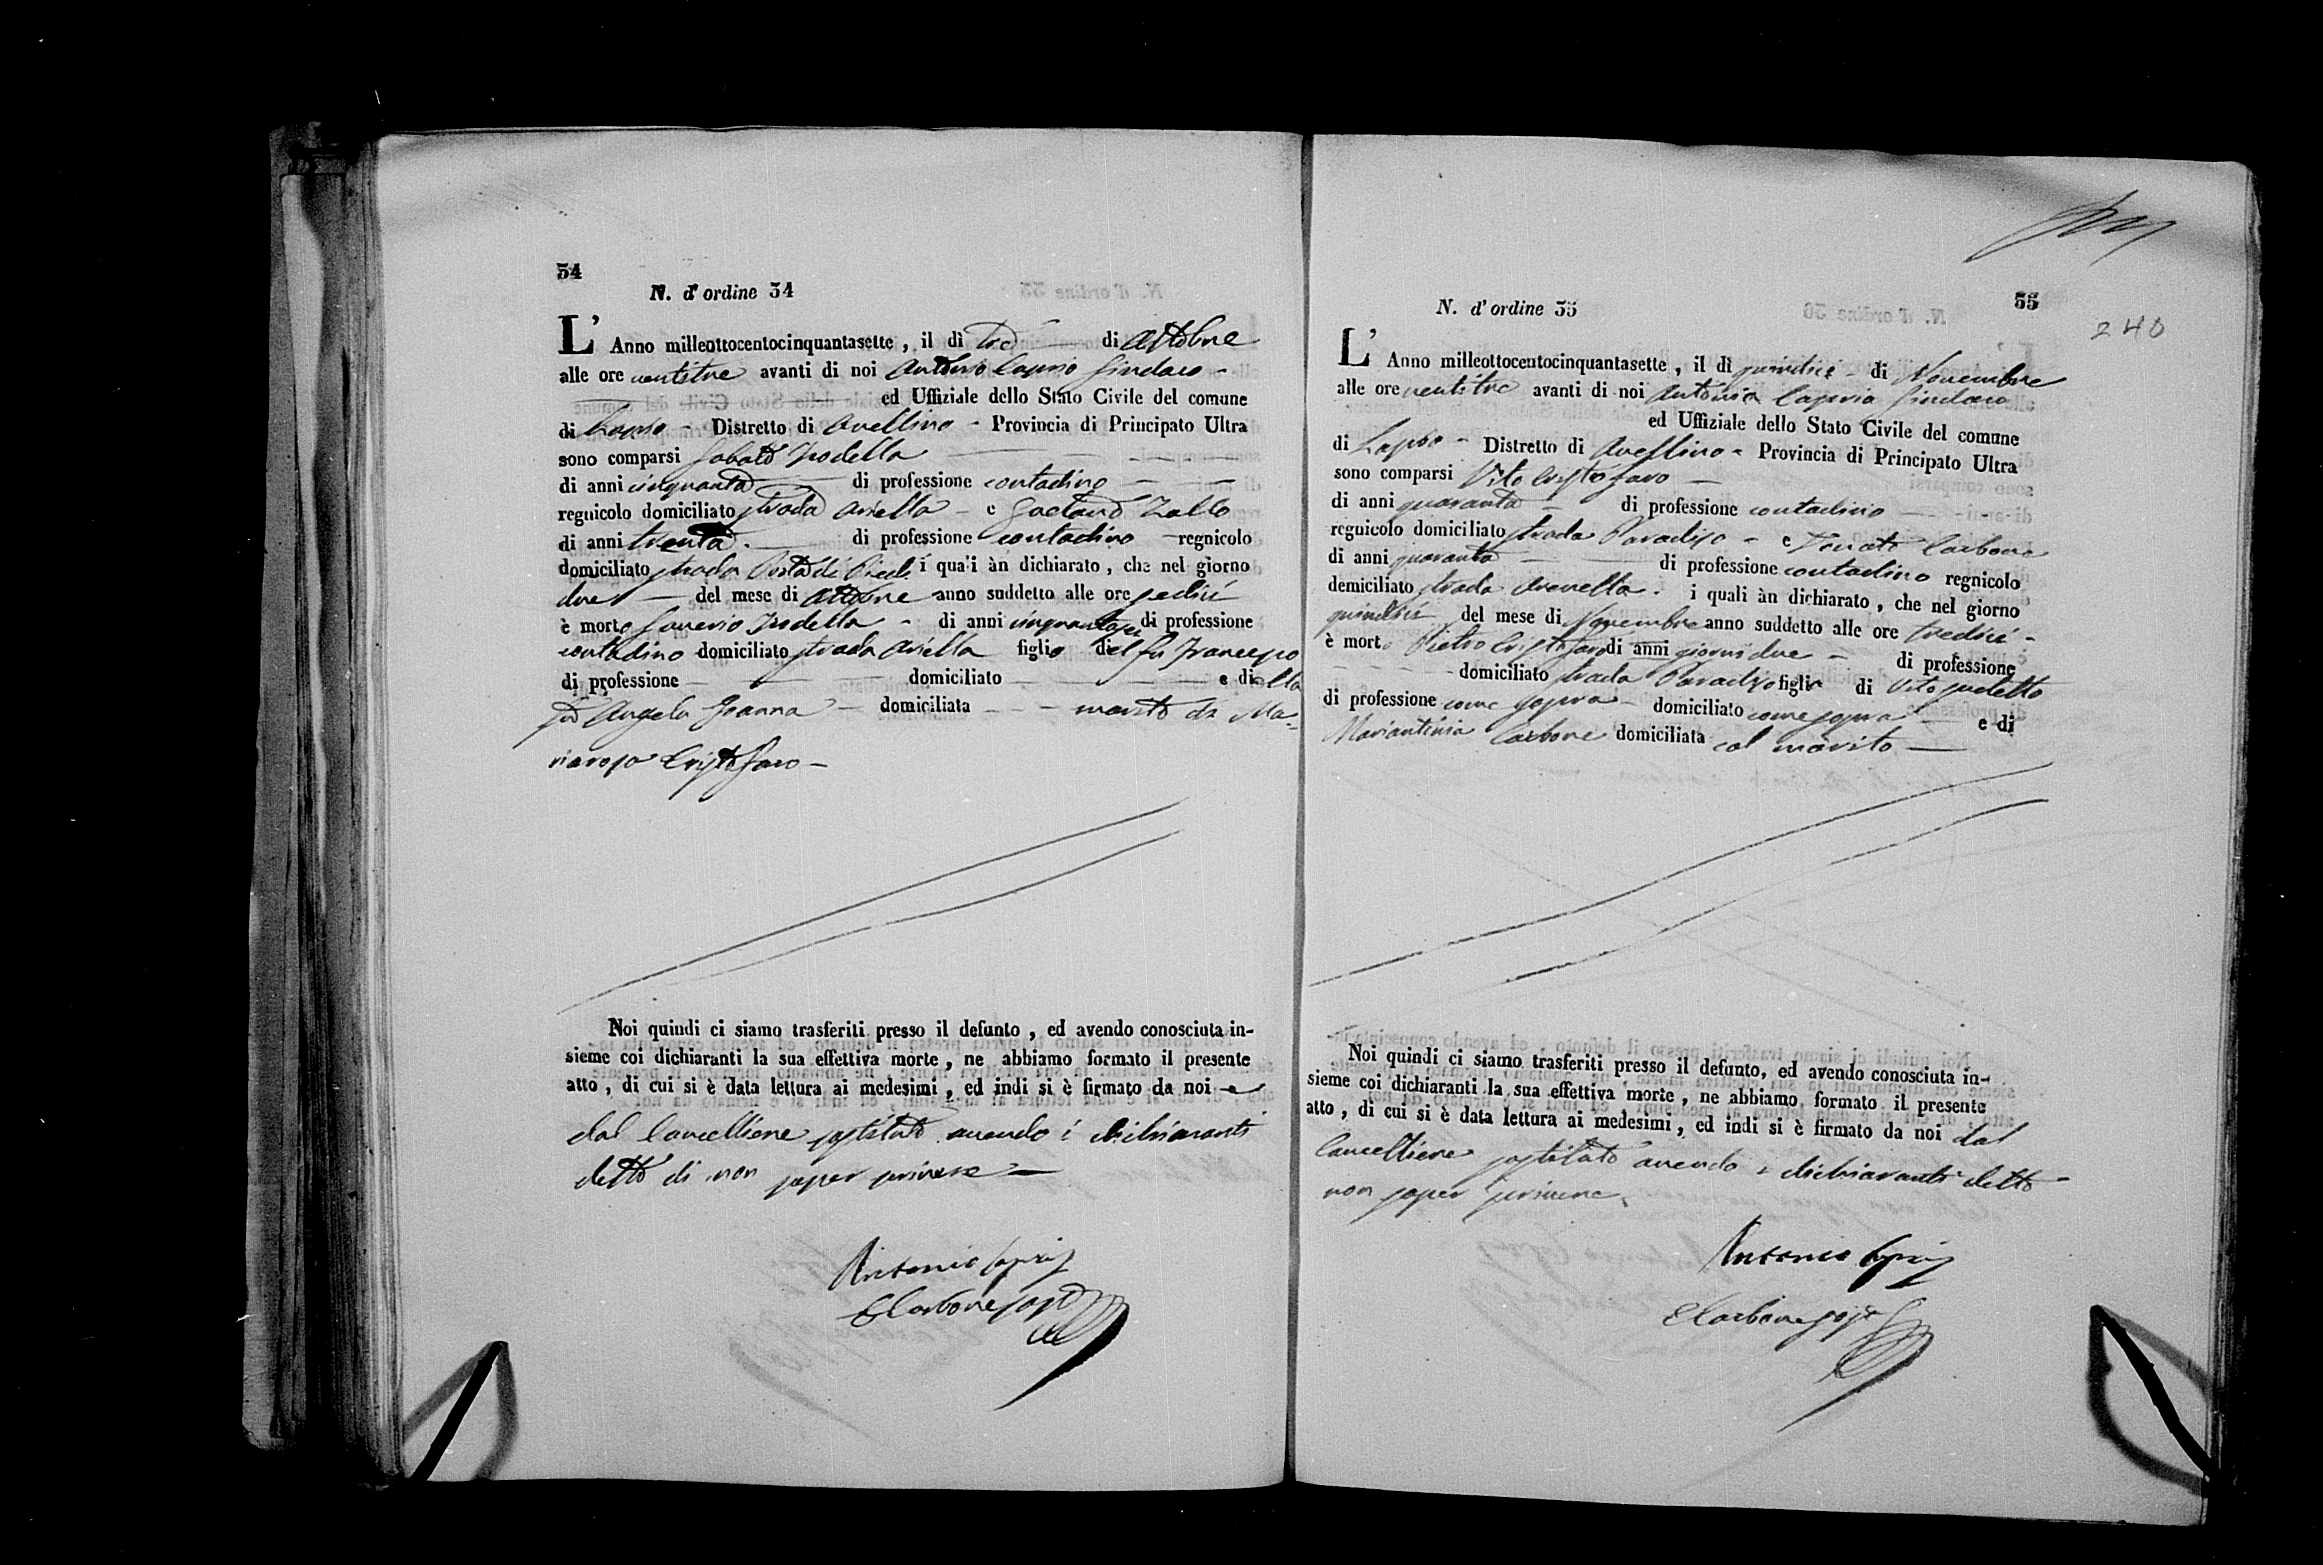 34
N. d'ordine 34
L'Anno milleottocentocinquantasette, il dì tre di Ottobre
alle ore ventitre avanti di noi Antonio Capria Sindaco
ed Uffiziale dello Stato Civile del comune
di Lapio Distretto di Avellino Provincia di Principato Ultra
sono comparsi Sabato Trodella
di anni cinquanta di professione contadino
regnicolo domiciliato strada Ariella e Gaetano Zallo
di anni trenta di professione contadino regnicolo
domiciliato strada i quali àn dichiarato, che nel giorno
due del mese di Ottobre anno suddetto alle ore sedici
è morto Saverio Trodella di anni di professione
contadino domiciliato strada Ariella figlio del fu Francesco
di professione domiciliato e della
fu Angela Joanna domiciliata marito di Ma-
riarosa Cristofaro
Noi quindi ci siamo trasferiti presso il defunto, ed avendo conosciuta in-
sieme coi dichiaranti la sua effettiva morte, ne abbiamo formato il presente
atto, di cui si è data lettura ai medesimi, ed indi si è firmato da noi e
dal Cancelliere sostituto avendo i dichiaranti
detto di non saper scrivere
Antonio Capria
C Carbone sost
35
240
N. d'ordine 35
L'Anno milleottocentocinquantasette, il dì quindici di Novembre
alle ore ventitre avanti di noi Antonio Capria Sindaco
ed Uffiziale dello Stato Civile del comune
di Lapio Distretto di Avellino Provincia di Principato Ultra
sono comparsi Vito Cristofaro
di anni quaranta di professione contadino
regnicolo domiciliato strada Paradiso e Donato Carbone
di anni quaranta di professione contadino regnicolo
domiciliato strada i quali àn dichiarato, che nel giorno
quindici del mese di Novembre anno suddetto alle ore tredici
è morto Pietro Cristofaro di anni giorni due di professione
domiciliato strada Paradiso figlio di Vito sudetto
di professione come sopra domiciliato come sopra e di
Mariantonia Carbone domiciliata col marito
Noi quindi ci siamo trasferiti presso il defunto, ed avendo conosciuta in-
sieme coi dichiaranti la sua effettiva morte, ne abbiamo formato il presente
atto, di cui si è data lettura ai medesimi, ed indi si è firmato da noi dal
Cancelliere sostituto avendo i dichiaranti detto
non saper scrivere
Antonio Capria
C Carbone sost